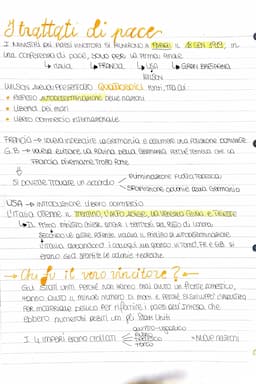 I trattati di pace
I MINISTRI DEI PAESI VINCITORI SI RIUNIRONO A PARIGI IL 18 GEN 1919, in
una conferenza di pace, dopo però la firma finale
↳ ITALIA ↳ FRANCIA ↳ USA ↳ GRAN BRETAGNA
WILSON
WILSON AVEVA PRESENTATO QUATTORDICI PUNTI, TRA CUI
• RISPETTO AUTODETERMINAZIONE DELLE NAZIONI
• LIBERTÀ DEI MARI
• LIBERO COMMERCIO INTERNAZIONALE
FRANCIA → VOLEVA INDEBOLIRE LA GERMANIA E ASSUMERE UNA POSIZIONE DOMINANTE
G.B → VOLEVA EVITARE LA ROVINA DELLA GERMANIA PERCHÉ TEMEVA CHE LA
FRANCIA DIVENTASSE TROPPO FORTE
SI DOVETTE TROVARE UN ACCORDO
ELIMINAZIONE FLOTTA TEDESCA
SPARTIZIONE COLONIE DELLA GERMANIA
USA → INTRODUZIONE LIBERO COMMERCIO
L'ITALIA OTTENNE IL TRENTINO, L'ALTO ADIGE, LA VENEZIA GIULIA E TRIESTE
IL PRIMO MINISTRO CHIESE ANCHE I TERRITORI DEL PATTO DI LONDRA
SECONDO LE ALTRE POTENZE VIOLAVA IL PRINCIPIO DI AUTODETERMINAZIONE
L'ITALIA ABBANDONÒ I COLLOQUI MA QUANDO VI TORNÒ, FR E G.B SI
ERANO GIÀ SPARTITE LE COLONIE TEDESCHE
→ Chi fu il vero vincitore? ←
GLI STATI UNITI, PERCHÉ NON HANNO MAI AVUTO UN FRONTE DOMESTICO,
HANNO AVUTO IL MINOR NUMERO DI MORTI E PERCHÉ
PER MATERIALE BELLICO PER RIFORNIRE I PAESI DELL'INTESA, CHE
EBBERO NUMEROSI DEBITI CON GLI STATI UNITI
AUSTRO-UNGARICO
I 4 IMPERI ERANO CROLLATI RUSSO → NUOVE NAZIONI
TEDESCO
TURCO